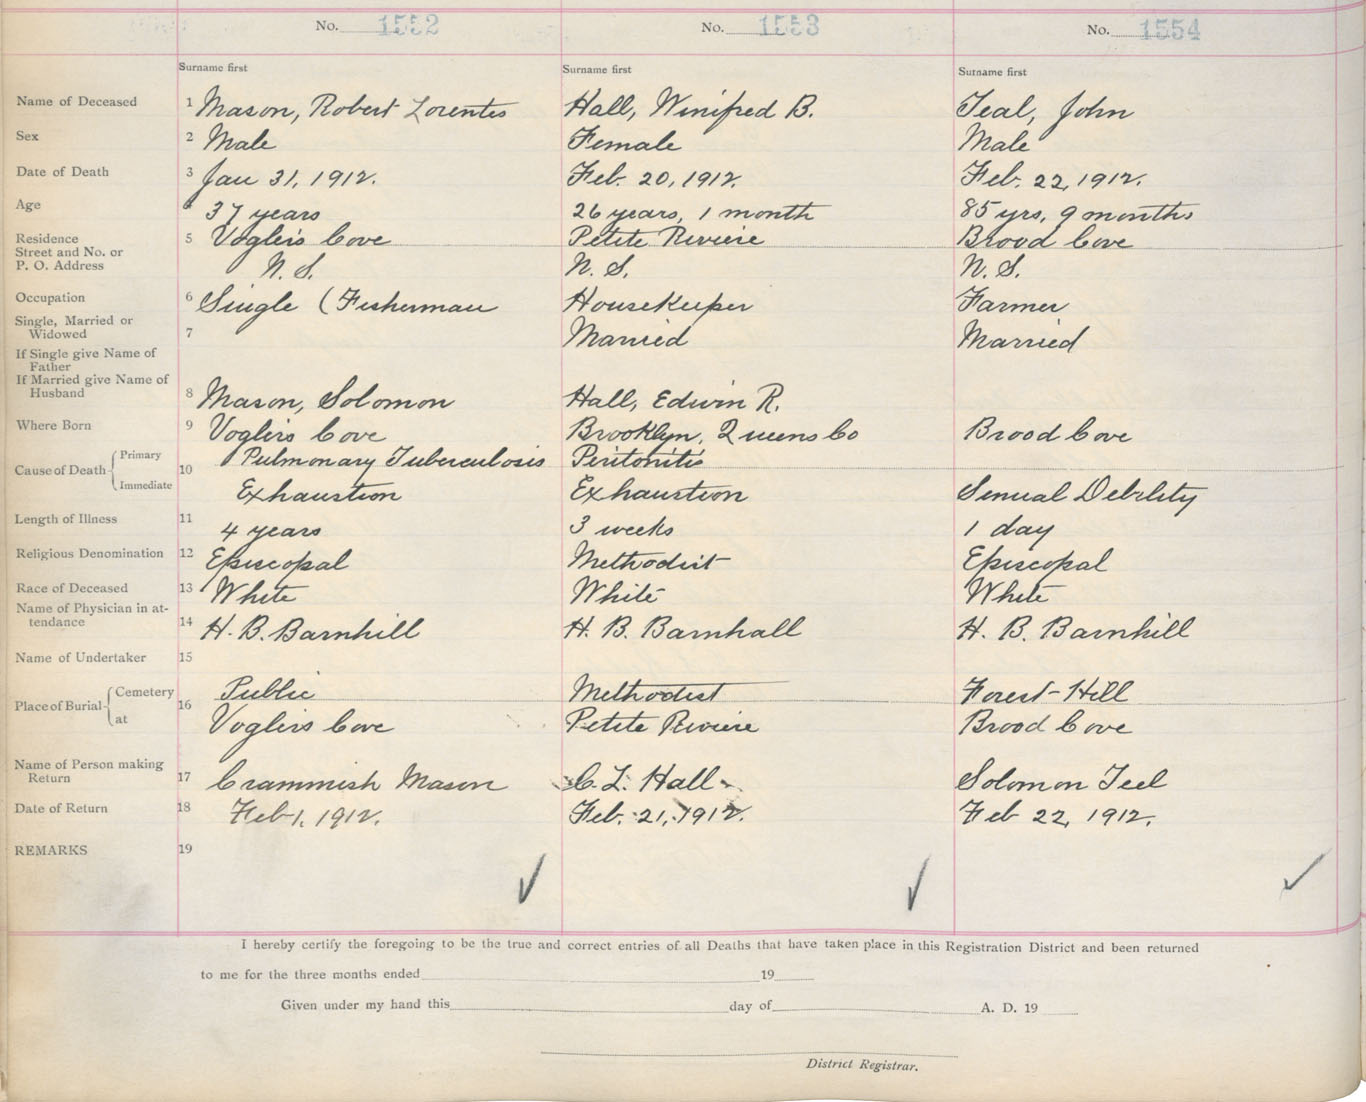 No. 1552 No. 1553 No. 1554
Surname first Surname first Surname first
Name of Deceased 1 Mason, Robert Lorentes Hall, Winifred B. Teal, John
Sex 2 Male Female Male
Date of Death 3 Jan 31, 1912. Feb. 20, 1912. Feb. 22, 1912.
Age 4 37 years 26 years, 1 month 85 yrs, 9 months
Residence 5 Voglers Cove Petite Riviere Brood Cove
Street and No. or
P. O. Address N. S. N. S. N. S.
Occupation 6 Single (Fisherman Housekeeper Farmer
Single, Married or
Widowed 7 Married Married
If Single give Name of
Father
If Married give Name of
Husband 8 Mason, Solomon Hall, Edwin R.
Where Born 9 Voglers Cove Brooklyn, Queens Co Brood Cove
Primary Pulmonary Tuberculosis Peritonitis
Cause of Death 10
Immediate Exhaustion Exhaustion Senual Debility
Length of Illness 11 4 years 3 weeks 1 day
Religious Denomination 12 Episcopal Methodist Episcopal
Race of Deceased 13 White White White
Name of Physician in at-
tendance 14 H. B. Barnhill H. B. Barnhall H. B. Barnhill
Name of Undertaker 15
Cemetery Public Methodist Forest-Hill
Place of Burial 16
at Voglers Cove Petite Riviere Brood Cove
Name of Person making
Return 17 Crammish Mason C. L. Hall Solomon Teel
Date of Return 18 Feb 1, 1912. Feb. 21, 1912. Feb 22, 1912.
REMARKS 19
I hereby certify the foregoing to be the true and correct entries of all Deaths that have taken place in this Registration District and been returned
to me for the three months ended 19
Given under my hand this day of A. D. 19
District Registrar.